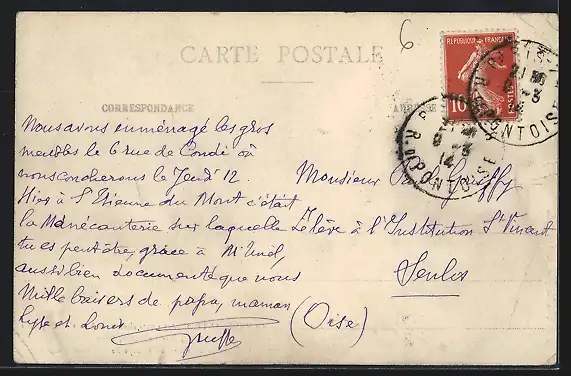 CARTE POSTALE
6
REPUBLIQUE FRANÇAISE
10
POSTES
PONTOISE
CORRESPONDANCE
Nous avons emménagé les gros
meubles le 6 rue de Condé où
nous coucherons le Jeudi 12.
Hier à St Etienne du Mont c'était
la Manécanterie sur laquelle
tu es peut être, grâce à Mr
aussi bien documenté que nous
Mille baisers de papa, maman
et Louis
Monsieur
Elève à l'Institution St Vincent
Senlis
(Oise)
R. PONTOISE